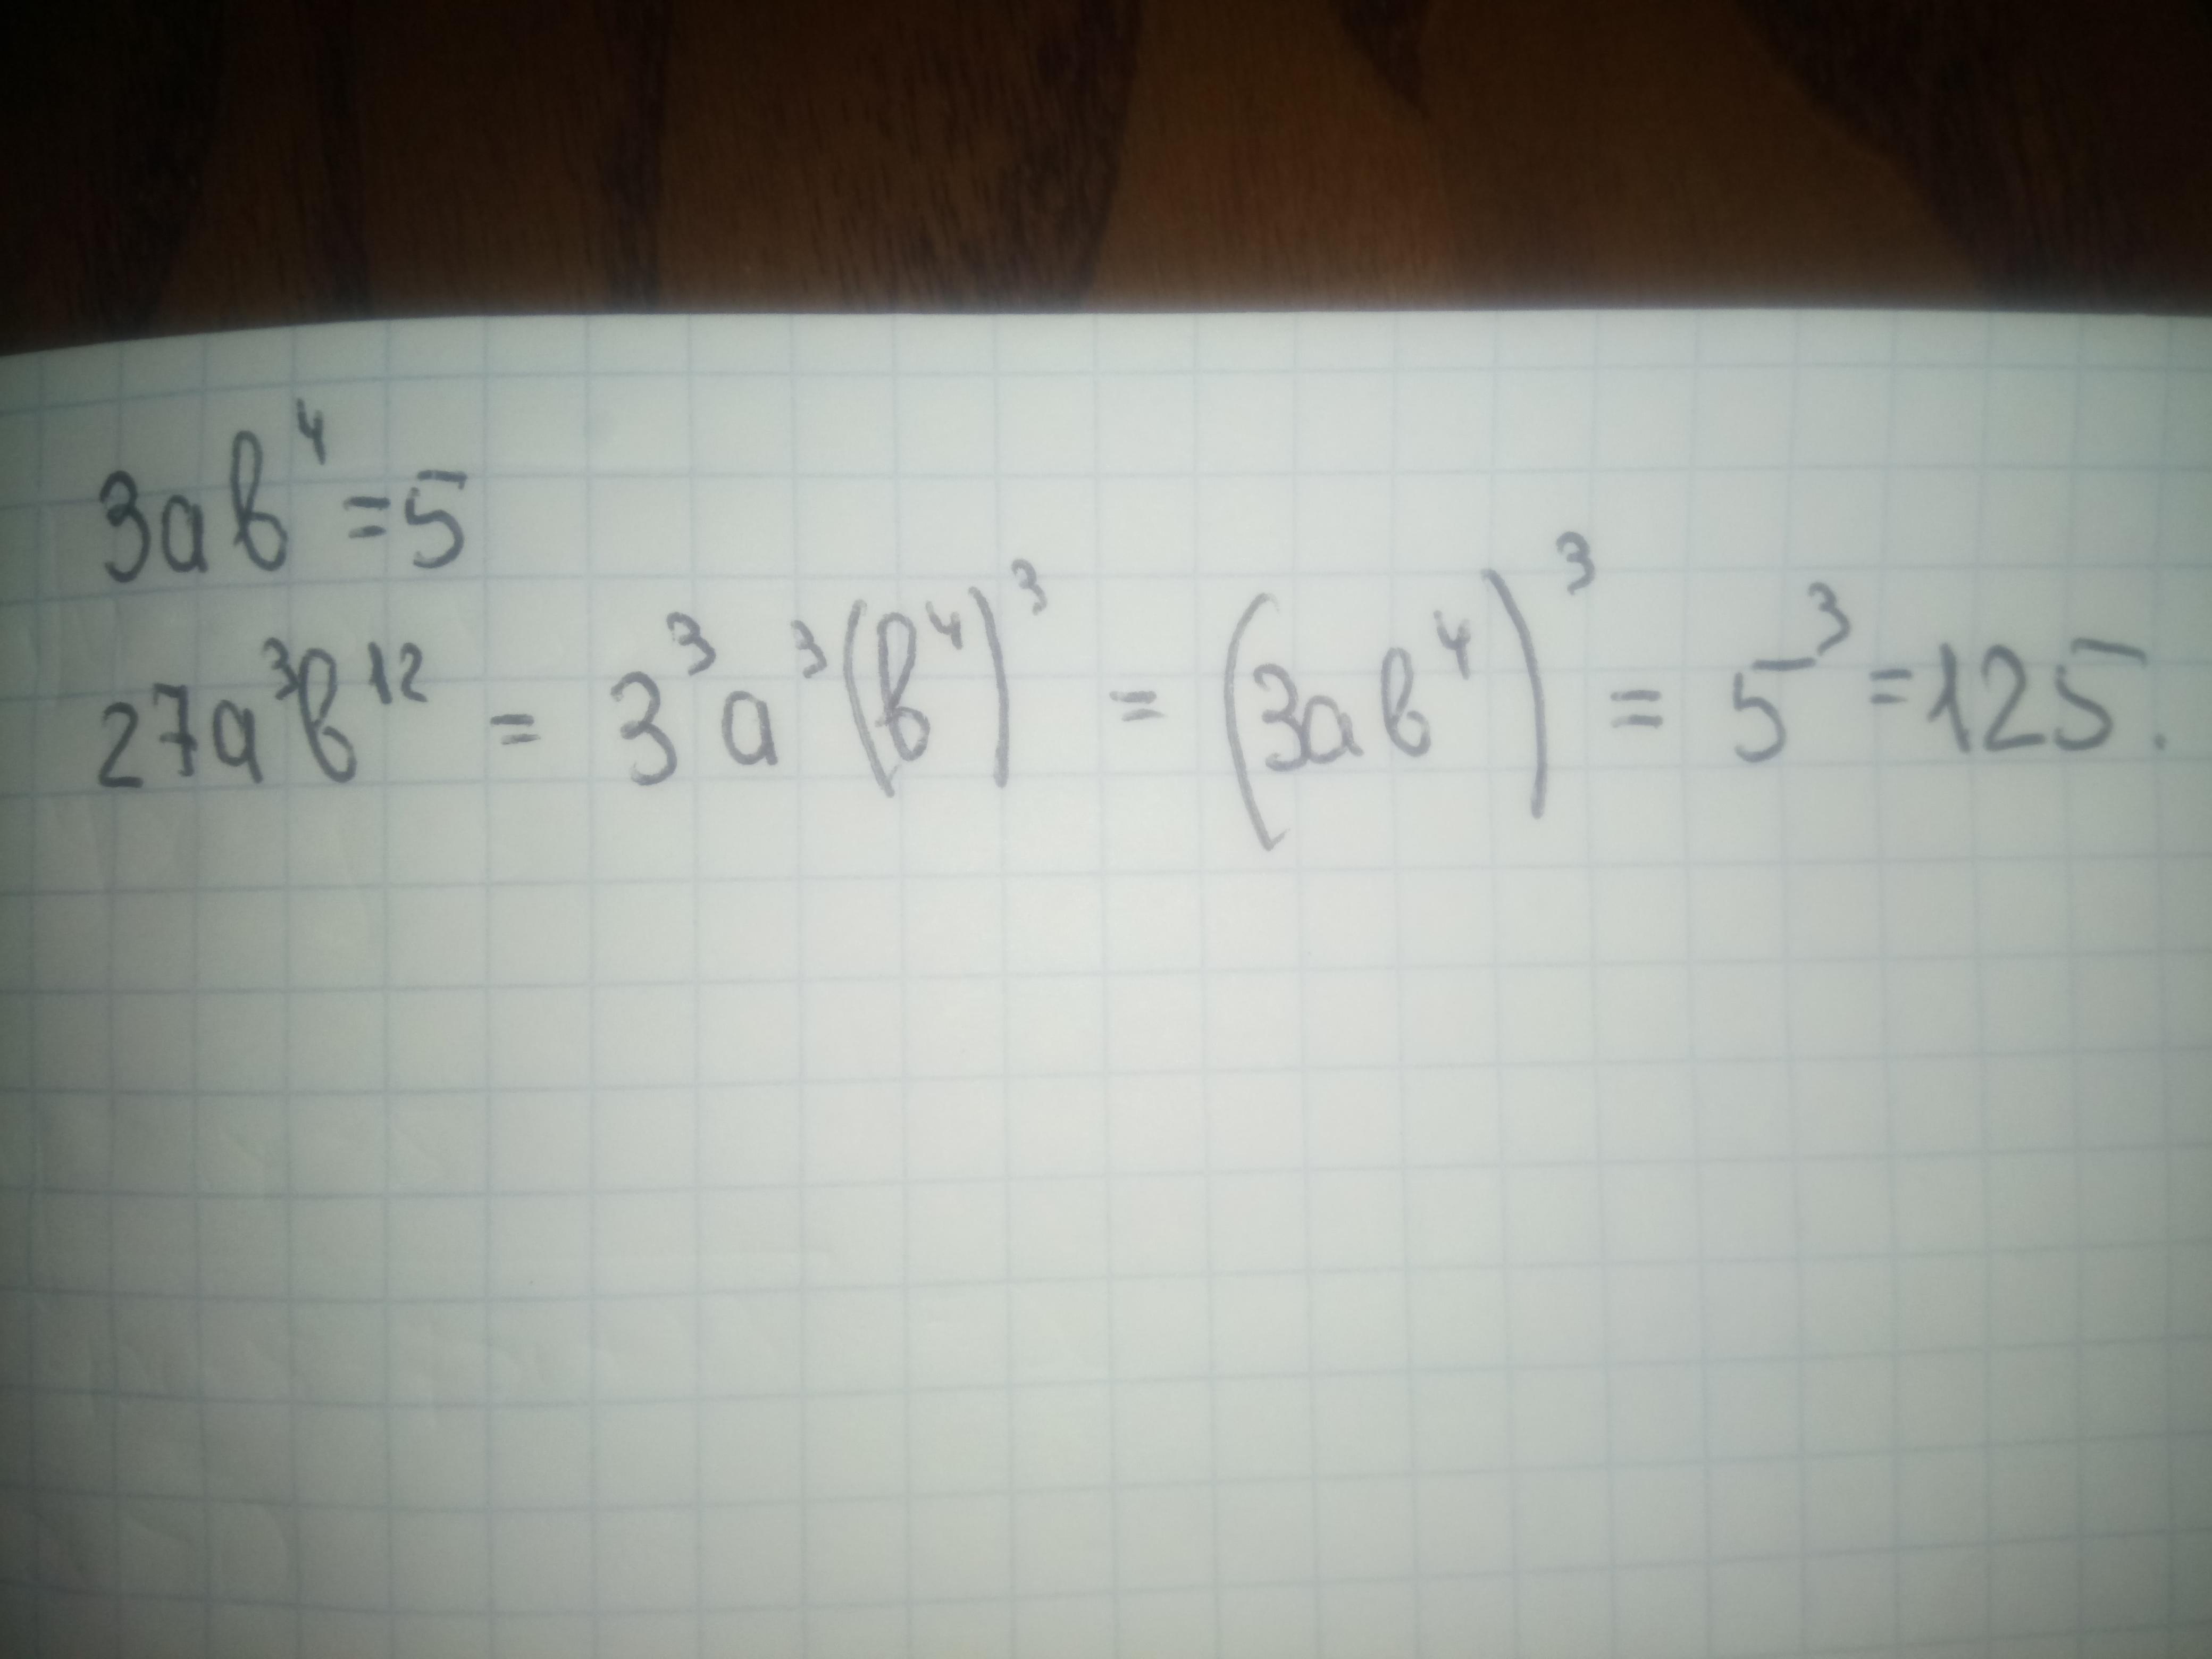 3ab⁴=5
27a³b¹² = 3³a³(b⁴)³ = (3ab⁴)³ = 5³=125.